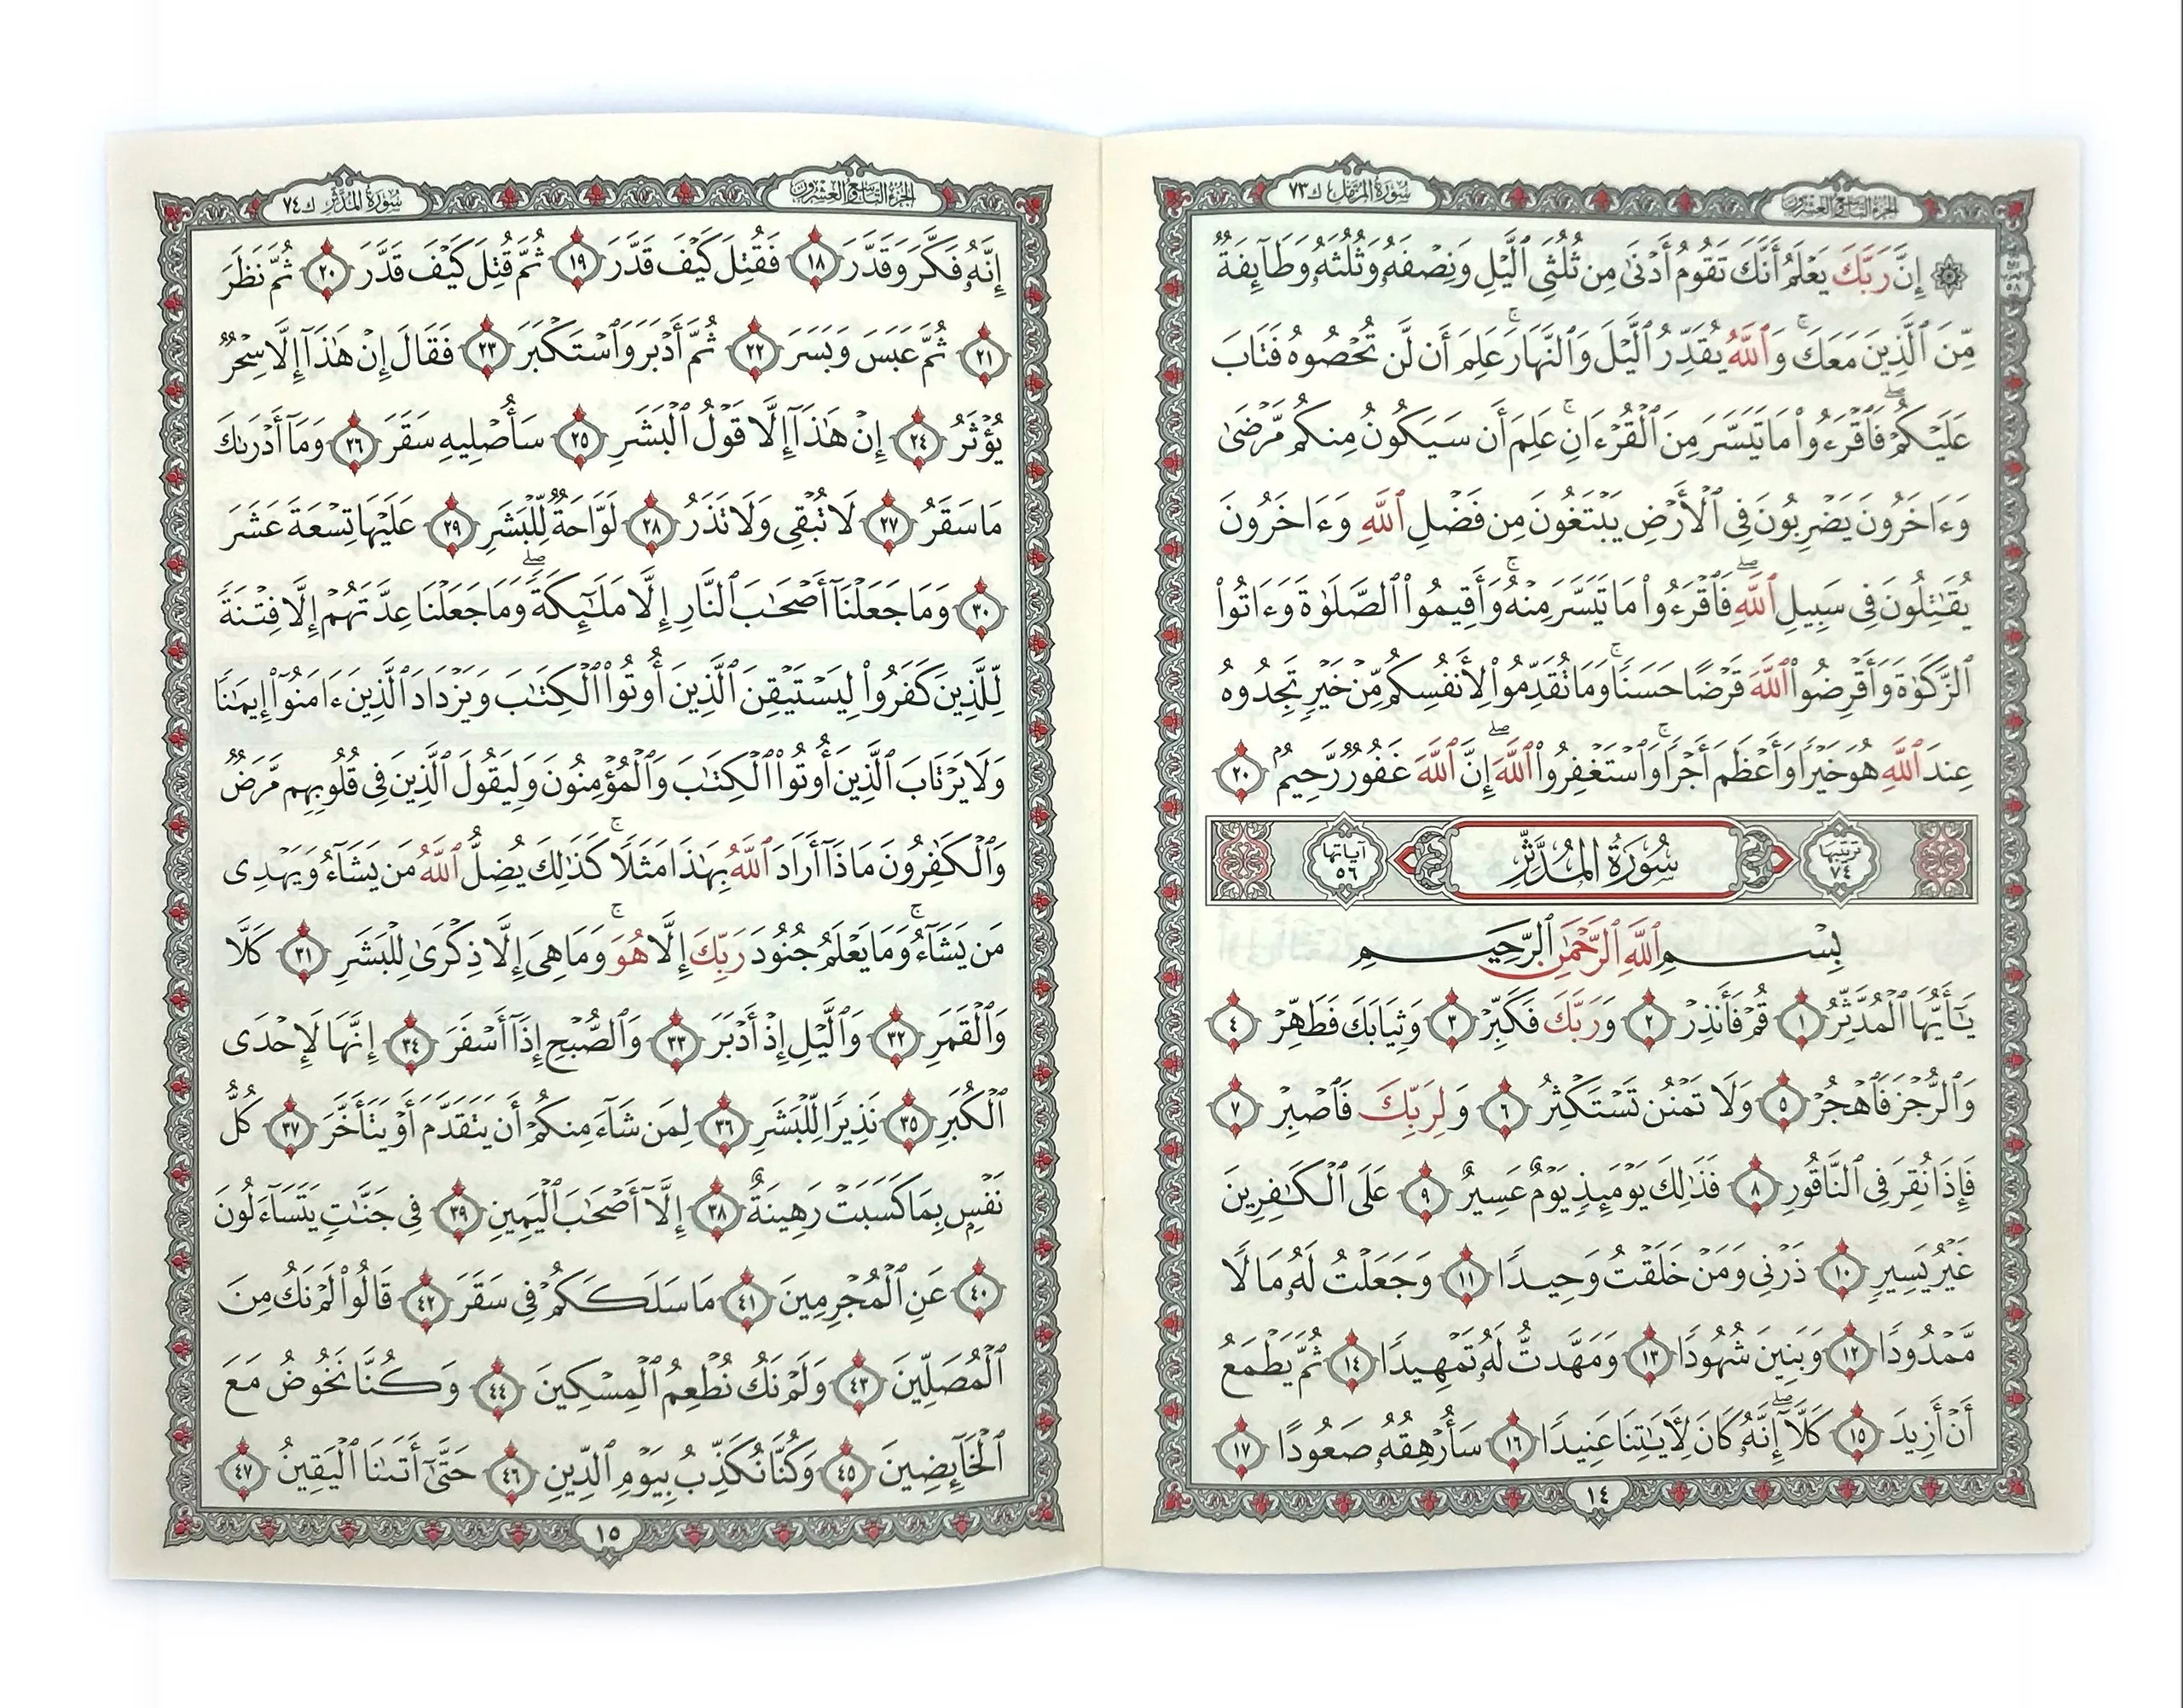 سُورَةُ المُزَّمِّل ك ٧٣
الجزء التاسع والعشرون
إِنَّ رَبَّكَ يَعْلَمُ أَنَّكَ تَقُومُ أَدْنَىٰ مِن ثُلُثَىِ ٱلَّيْلِ وَنِصْفَهُۥ وَثُلُثَهُۥ وَطَآئِفَةٌ
مِّنَ ٱلَّذِينَ مَعَكَ ۚ وَٱللَّهُ يُقَدِّرُ ٱلَّيْلَ وَٱلنَّهَارَ ۚ عَلِمَ أَن لَّن تُحْصُوهُ فَتَابَ
عَلَيْكُمْ ۖ فَٱقْرَءُوا۟ مَا تَيَسَّرَ مِنَ ٱلْقُرْءَانِ ۚ عَلِمَ أَن سَيَكُونُ مِنكُم مَّرْضَىٰ
وَءَاخَرُونَ يَضْرِبُونَ فِى ٱلْأَرْضِ يَبْتَغُونَ مِن فَضْلِ ٱللَّهِ وَءَاخَرُونَ
يُقَـٰتِلُونَ فِى سَبِيلِ ٱللَّهِ ۖ فَٱقْرَءُوا۟ مَا تَيَسَّرَ مِنْهُ ۚ وَأَقِيمُوا۟ ٱلصَّلَوٰةَ وَءَاتُوا۟
ٱلزَّكَوٰةَ وَأَقْرِضُوا۟ ٱللَّهَ قَرْضًا حَسَنًا ۚ وَمَا تُقَدِّمُوا۟ لِأَنفُسِكُم مِّنْ خَيْرٍ تَجِدُوهُ
عِندَ ٱللَّهِ هُوَ خَيْرًا وَأَعْظَمَ أَجْرًا ۚ وَٱسْتَغْفِرُوا۟ ٱللَّهَ ۖ إِنَّ ٱللَّهَ غَفُورٌ رَّحِيمٌۢ ٢٠
ترتيبها ٧٤ سُورَةُ المُدَّثِّرِ آياتها ٥٦
بِسْمِ ٱللَّهِ ٱلرَّحْمَـٰنِ ٱلرَّحِيمِ
يَـٰٓأَيُّهَا ٱلْمُدَّثِّرُ ١ قُمْ فَأَنذِرْ ٢ وَرَبَّكَ فَكَبِّرْ ٣ وَثِيَابَكَ فَطَهِّرْ ٤
وَٱلرُّجْزَ فَٱهْجُرْ ٥ وَلَا تَمْنُن تَسْتَكْثِرُ ٦ وَلِرَبِّكَ فَٱصْبِرْ ٧
فَإِذَا نُقِرَ فِى ٱلنَّاقُورِ ٨ فَذَٰلِكَ يَوْمَئِذٍ يَوْمٌ عَسِيرٌ ٩ عَلَى ٱلْكَـٰفِرِينَ
غَيْرُ يَسِيرٍ ١٠ ذَرْنِى وَمَنْ خَلَقْتُ وَحِيدًا ١١ وَجَعَلْتُ لَهُۥ مَالًا
مَّمْدُودًا ١٢ وَبَنِينَ شُهُودًا ١٣ وَمَهَّدتُّ لَهُۥ تَمْهِيدًا ١٤ ثُمَّ يَطْمَعُ
أَنْ أَزِيدَ ١٥ كَلَّآ ۖ إِنَّهُۥ كَانَ لِـَٔايَـٰتِنَا عَنِيدًا ١٦ سَأُرْهِقُهُۥ صَعُودًا ١٧
١٤
سُورَةُ المُدَّثِّر ك ٧٤
الجزء التاسع والعشرون
إِنَّهُۥ فَكَّرَ وَقَدَّرَ ١٨ فَقُتِلَ كَيْفَ قَدَّرَ ١٩ ثُمَّ قُتِلَ كَيْفَ قَدَّرَ ٢٠ ثُمَّ نَظَرَ
٢١ ثُمَّ عَبَسَ وَبَسَرَ ٢٢ ثُمَّ أَدْبَرَ وَٱسْتَكْبَرَ ٢٣ فَقَالَ إِنْ هَـٰذَآ إِلَّا سِحْرٌ
يُؤْثَرُ ٢٤ إِنْ هَـٰذَآ إِلَّا قَوْلُ ٱلْبَشَرِ ٢٥ سَأُصْلِيهِ سَقَرَ ٢٦ وَمَآ أَدْرَىٰكَ
مَا سَقَرُ ٢٧ لَا تُبْقِى وَلَا تَذَرُ ٢٨ لَوَّاحَةٌ لِّلْبَشَرِ ٢٩ عَلَيْهَا تِسْعَةَ عَشَرَ
٣٠ وَمَا جَعَلْنَآ أَصْحَـٰبَ ٱلنَّارِ إِلَّا مَلَـٰٓئِكَةً ۖ وَمَا جَعَلْنَا عِدَّتَهُمْ إِلَّا فِتْنَةً
لِّلَّذِينَ كَفَرُوا۟ لِيَسْتَيْقِنَ ٱلَّذِينَ أُوتُوا۟ ٱلْكِتَـٰبَ وَيَزْدَادَ ٱلَّذِينَ ءَامَنُوٓا۟ إِيمَـٰنًا
وَلَا يَرْتَابَ ٱلَّذِينَ أُوتُوا۟ ٱلْكِتَـٰبَ وَٱلْمُؤْمِنُونَ وَلِيَقُولَ ٱلَّذِينَ فِى قُلُوبِهِم مَّرَضٌ
وَٱلْكَـٰفِرُونَ مَاذَآ أَرَادَ ٱللَّهُ بِهَـٰذَا مَثَلًا ۚ كَذَٰلِكَ يُضِلُّ ٱللَّهُ مَن يَشَآءُ وَيَهْدِى
مَن يَشَآءُ ۚ وَمَا يَعْلَمُ جُنُودَ رَبِّكَ إِلَّا هُوَ ۚ وَمَا هِىَ إِلَّا ذِكْرَىٰ لِلْبَشَرِ ٣١ كَلَّا
وَٱلْقَمَرِ ٣٢ وَٱلَّيْلِ إِذْ أَدْبَرَ ٣٣ وَٱلصُّبْحِ إِذَآ أَسْفَرَ ٣٤ إِنَّهَا لَإِحْدَى
ٱلْكُبَرِ ٣٥ نَذِيرًا لِّلْبَشَرِ ٣٦ لِمَن شَآءَ مِنكُمْ أَن يَتَقَدَّمَ أَوْ يَتَأَخَّرَ ٣٧ كُلُّ
نَفْسٍۭ بِمَا كَسَبَتْ رَهِينَةٌ ٣٨ إِلَّآ أَصْحَـٰبَ ٱلْيَمِينِ ٣٩ فِى جَنَّـٰتٍ يَتَسَآءَلُونَ
٤٠ عَنِ ٱلْمُجْرِمِينَ ٤١ مَا سَلَكَكُمْ فِى سَقَرَ ٤٢ قَالُوا۟ لَمْ نَكُ مِنَ
ٱلْمُصَلِّينَ ٤٣ وَلَمْ نَكُ نُطْعِمُ ٱلْمِسْكِينَ ٤٤ وَكُنَّا نَخُوضُ مَعَ
ٱلْخَآئِضِينَ ٤٥ وَكُنَّا نُكَذِّبُ بِيَوْمِ ٱلدِّينِ ٤٦ حَتَّىٰٓ أَتَىٰنَا ٱلْيَقِينُ ٤٧
١٥